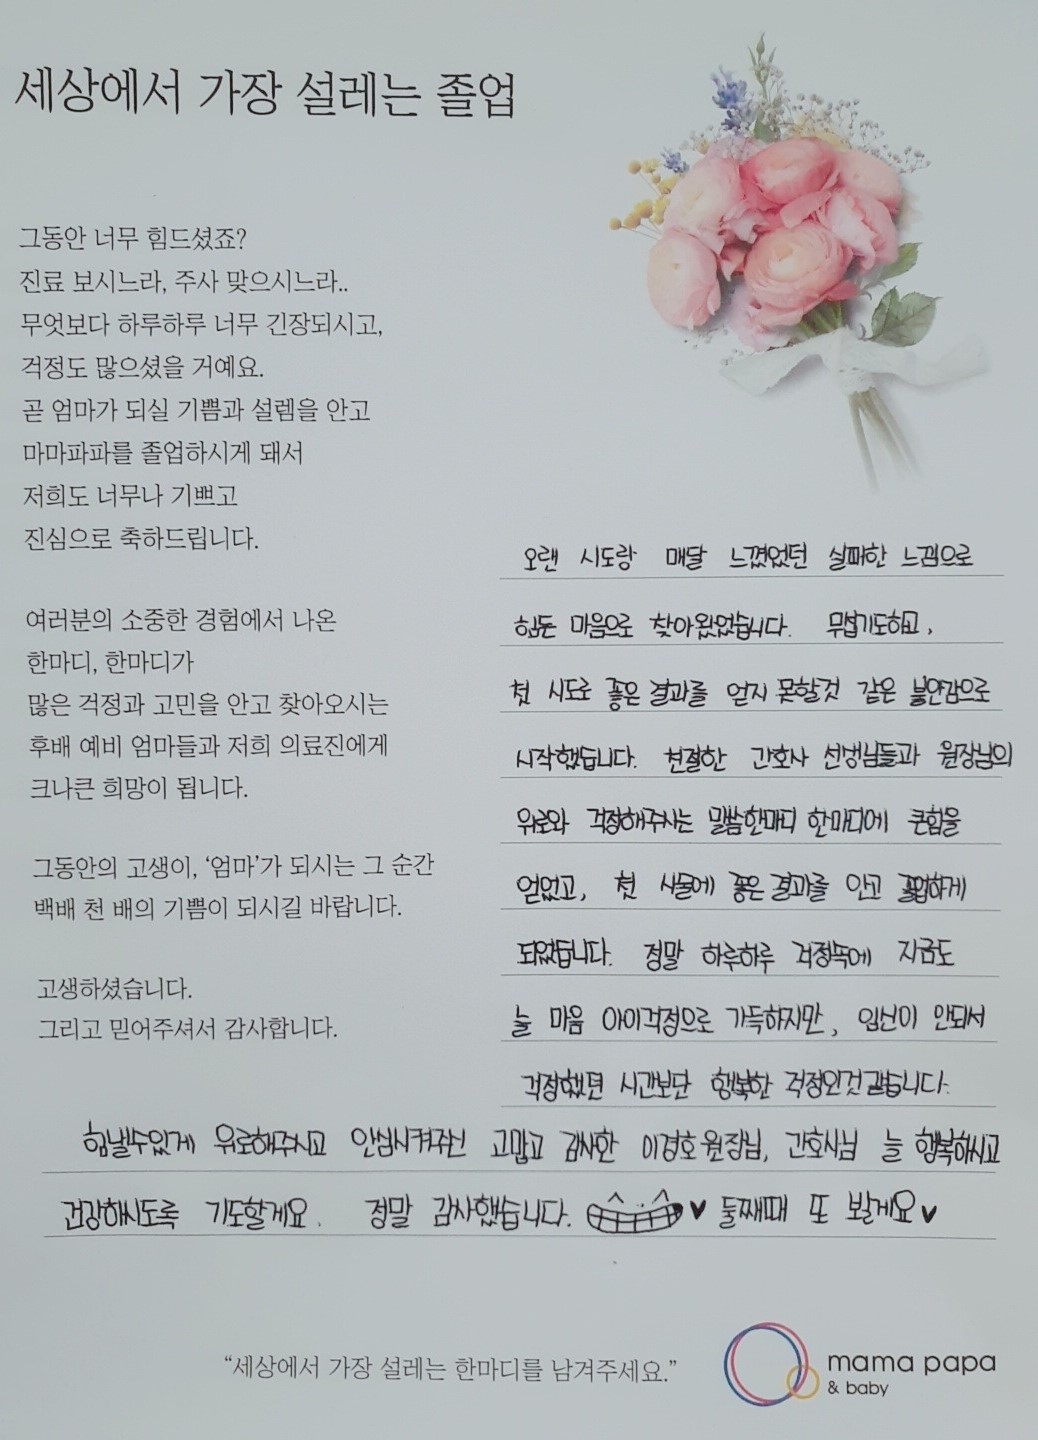 세상에서 가장 설레는 졸업
그동안 너무 힘드셨죠?
진료 보시느라, 주사 맞으시느라..
무엇보다 하루하루 너무 긴장되시고,
걱정도 많으셨을 거예요.
곧 엄마가 되실 기쁨과 설렘을 안고
마마파파를 졸업하시게 돼서
저희도 너무나 기쁘고
진심으로 축하드립니다.
여러분의 소중한 경험에서 나온
한마디, 한마디가
많은 걱정과 고민을 안고 찾아오시는
후배 예비 엄마들과 저희 의료진에게
크나큰 희망이 됩니다.
그동안의 고생이, ‘엄마’가 되시는 그 순간
백배 천 배의 기쁨이 되시길 바랍니다.
고생하셨습니다.
그리고 믿어주셔서 감사합니다.
오랜 시도랑 매달 느꼈었던 실패한 느낌으로
힘든 마음으로 찾아왔었습니다. 무섭기도하고,
첫 시도로 좋은 결과를 얻지 못할것 같은 불안감으로
시작했습니다. 친절한 간호사 선생님들과 원장님의
위로와 걱정해주시는 말씀한마디 한마디에 큰힘을
얻었고, 첫 시술에 좋은 결과를 안고 졸업하게
되었습니다. 정말 하루하루 걱정속에 지금도
늘 마음 아이걱정으로 가득하지만, 임신이 안되서
걱정했던 시간보단 행복한 걱정인것 같습니다.
힘낼수있게 위로해주시고 안심시켜주신 고맙고 감사한 이경호 원장님, 간호사님 늘 행복하시고
건강하시도록 기도할게요. 정말 감사했습니다. ♥ 둘째때 또 뵐게요♥
“세상에서 가장 설레는 한마디를 남겨주세요.”
mama papa
& baby